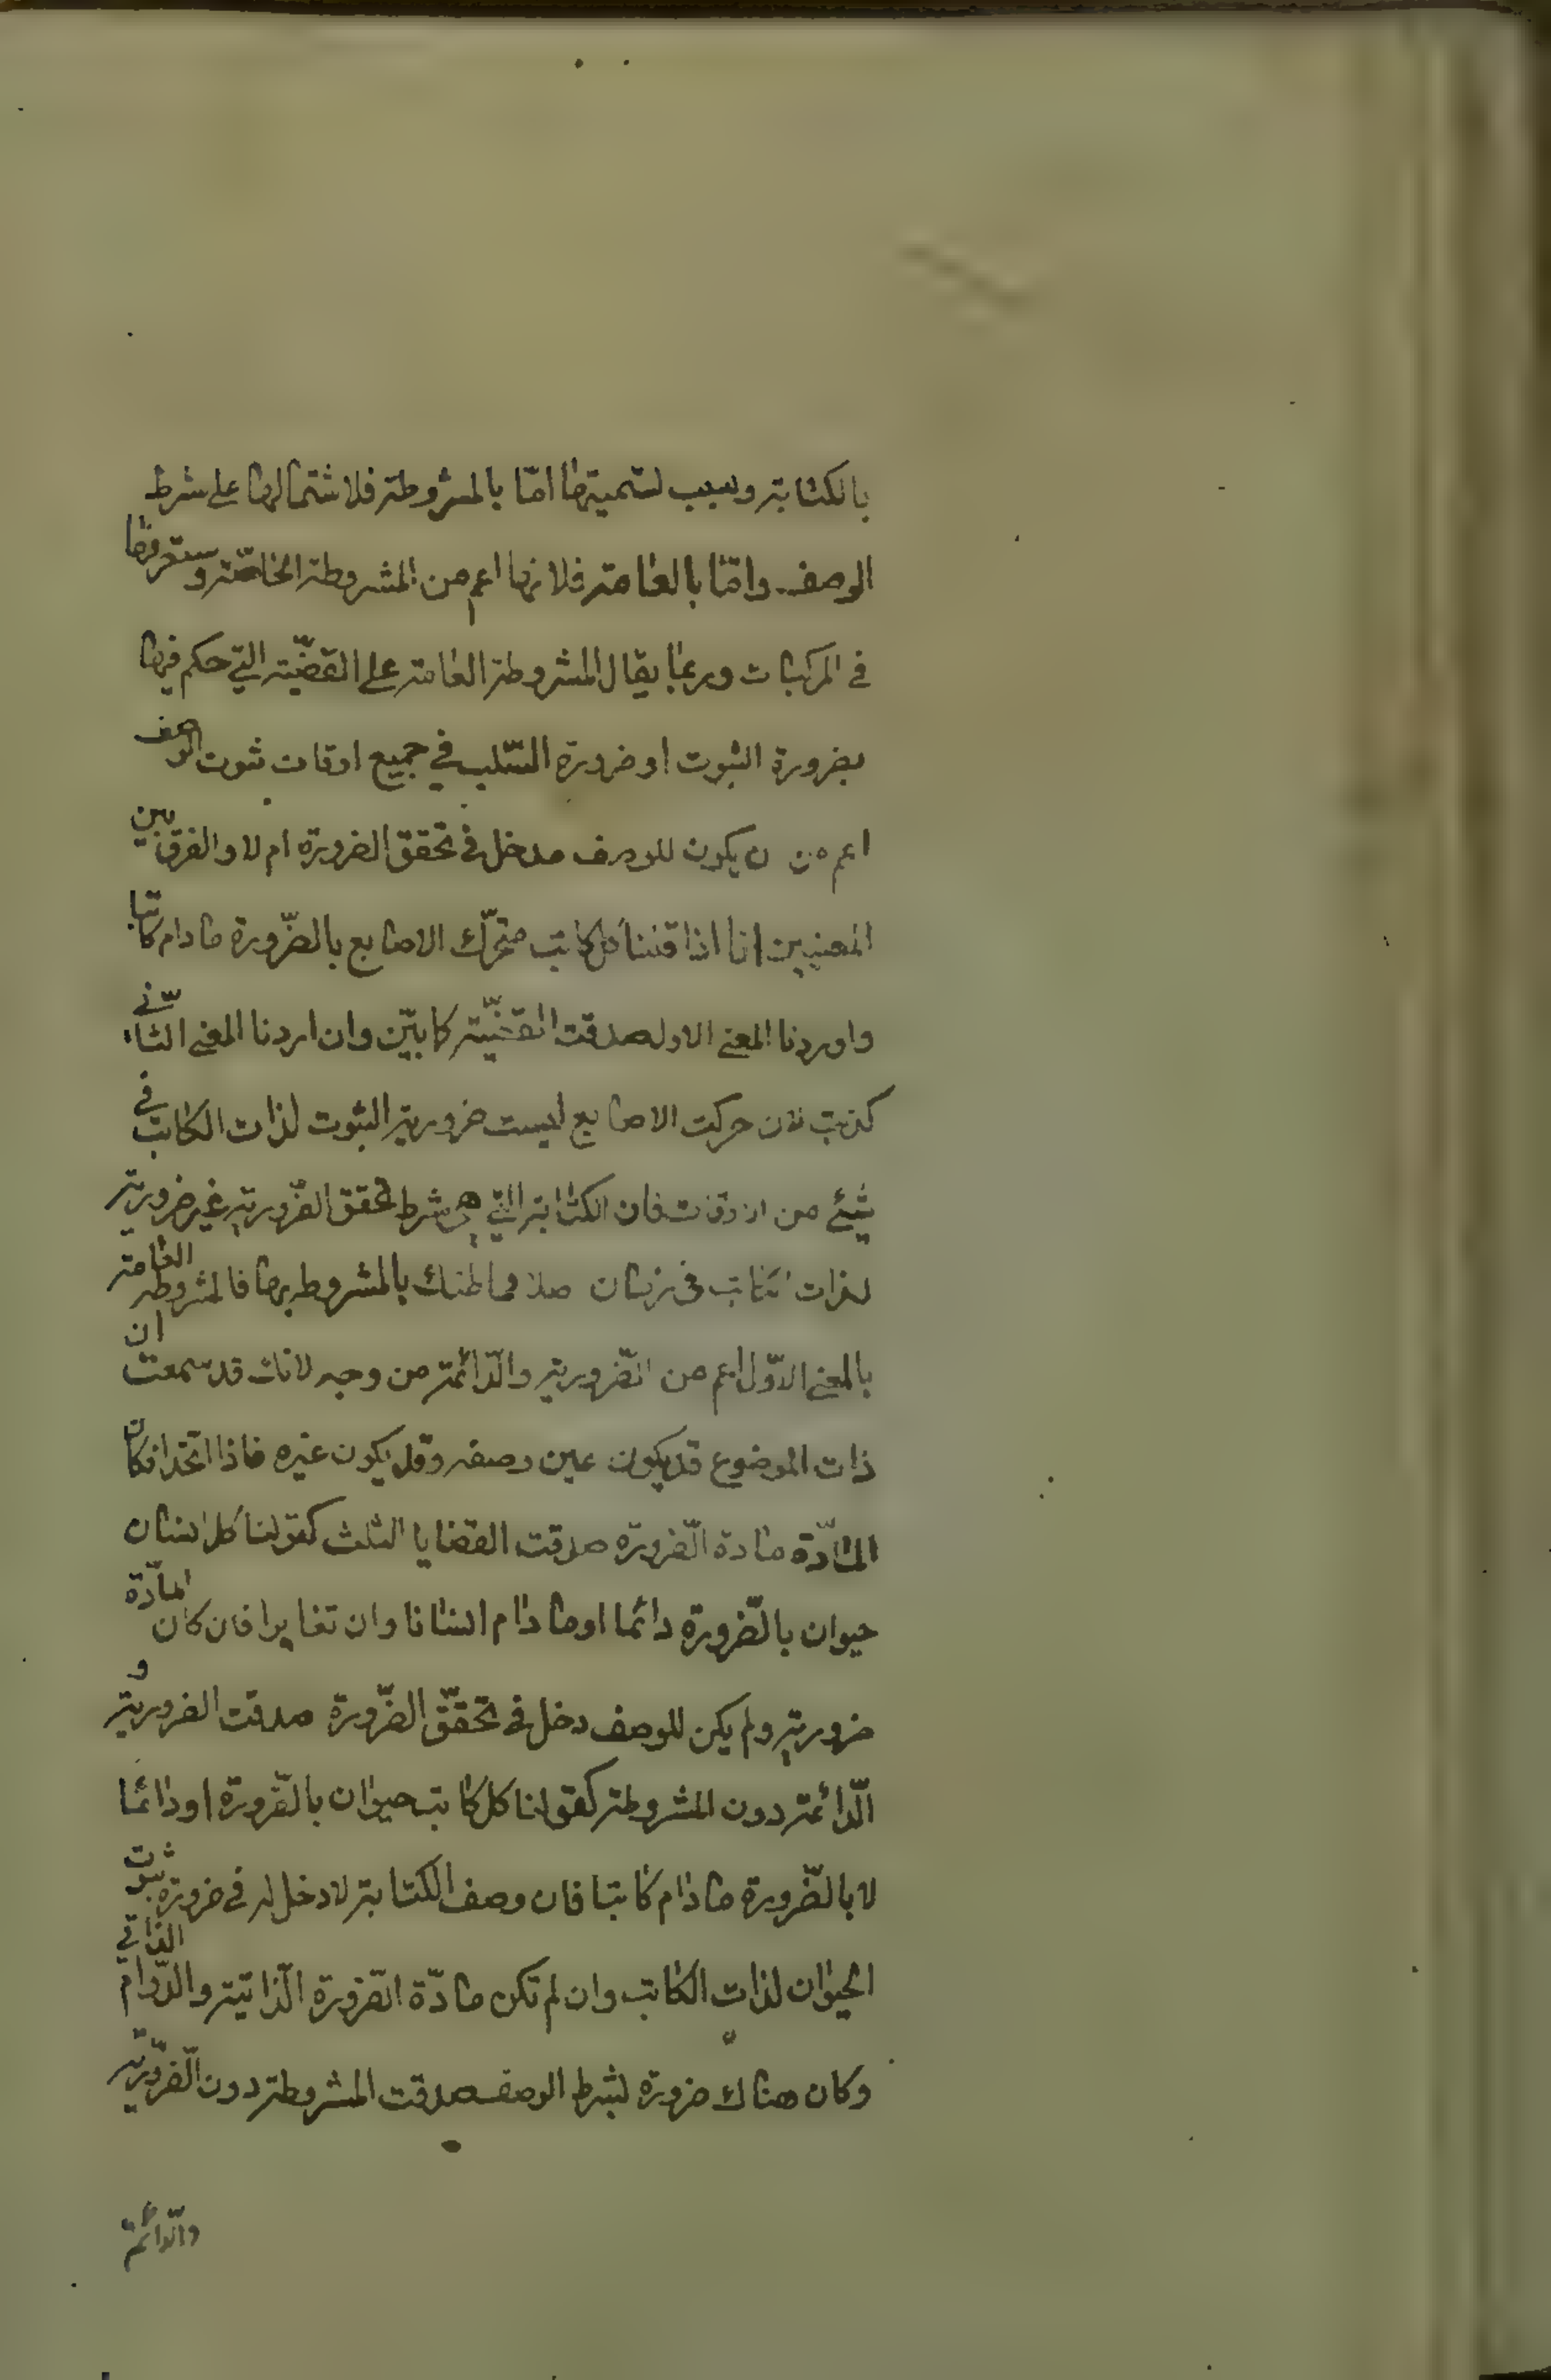 بالكتابة وسبب تسميتها اما بالمشروطة فلاشتمالها على شرط
الوصف واما بالعامة فلانها اعم من المشروطة الخاصة وستعرفها
في المركبات وربما يقال المشروطة العامة على القضيّة التي حكم فيها
بضرورة الثبوت او ضرورة السّلب في جميع اوقات ثبوت الوصف
اعم من ن يكون للوصف مدخل في تحقق الضرورة ام لا والفرق بين
المعنيين انا اذا قلنا كل كاتب متحرّك الاصابع بالضّرورة مادام كاتبا
واوردنا المعنى الاول صدقت القضيّة كما بيّن وان اردنا المعنى الثاني
كذبت لان حركت الاصابع ليست ضرورية الثبوت لذات الكاتب في
شيئ من الاوقات فان الكتابة التي هي شرط تحقق الضّرورية غير ضرورية
لذات الكاتب في زمان صلا فما ظنك بالمشروط بها فالمشروطة العامة
بالمعنى الاوّل اعم من الضّرورية والدّائمة من وجه لانك قد سمعت ان
ذات الموضوع قد يكون عين وصفه وقد يكون غيره فاذا اتحدا فكان
المادّة مادة الضّرورة صدقت القضايا الثلث كقولنا كل انسان
حيوان بالضّرورة دائما او مادام انسانا وان تغايرا فان كان المادّة
ضرورية ولم يكن للوصف دخل في تحقّق الضّرورة صدقت الضرورية و
الدّائمة دون المشروطة كقولنا كل كاتب حيوان بالضّرورة او دائما
لا بالضّرورة مادام كاتبا فان وصف الكتابة لا دخل له في ضرورة ثبوت
الحيوان لذات الكاتب وان لم تكن مادّة الضّرورة الذّاتية والدّوام الذاتي
وكان هناك ضرورة بشرط الوصف صدقت المشروطة دون الضّرورية
والدّائمة